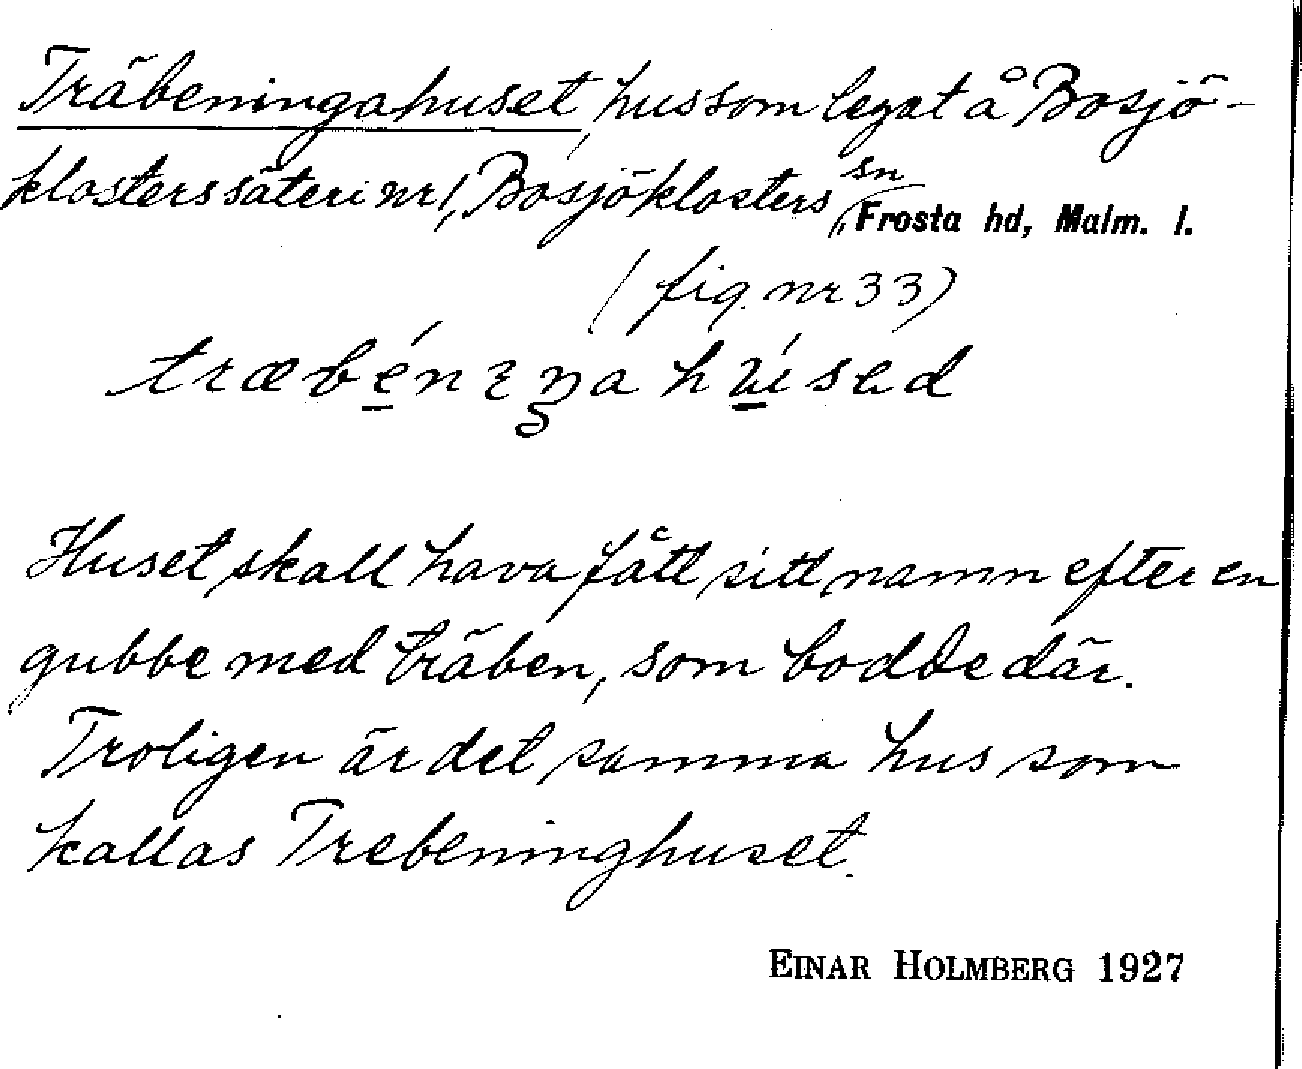 Träbeningahuset, hus som legat å Bosjö-
klosters säteri nr 1, Bosjöklosters sn, Frosta hd, Malm. l.
(fig. nr 33)
Huset skall hava fått sitt namn efter en
gubbe med träben, som bodde där.
Troligen är det samma hus som
kallas Trebeninghuset.
EINAR HOLMBERG 1927